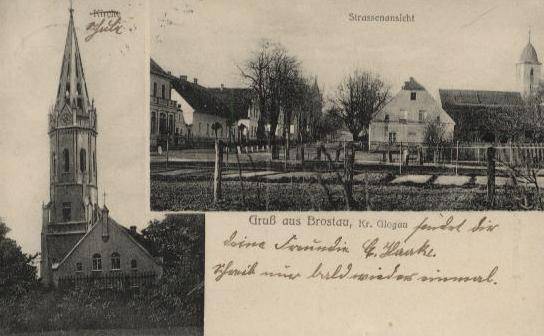 Kirche
Schule
Strassenansicht
Gruß aus Brostau, Kr. Glogau sendet dir
deine Freundin E. Haake.
Schreib nur bald wieder einmal.